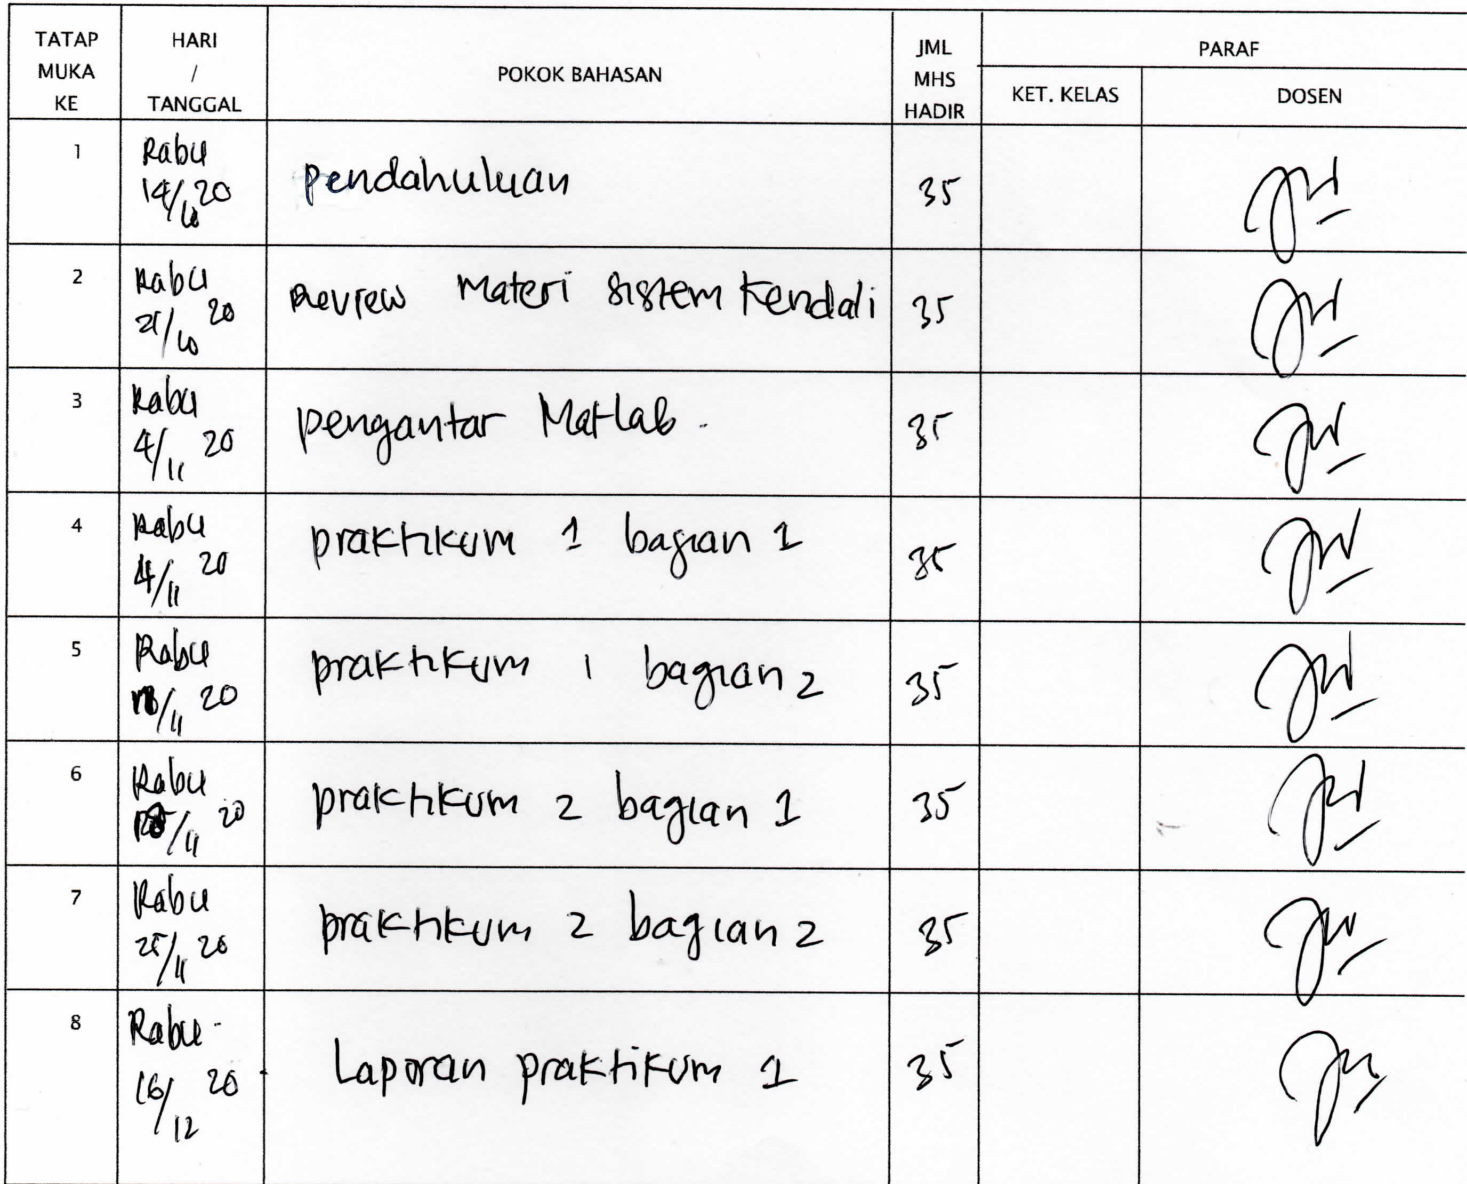 TATAP MUKA KE
HARI / TANGGAL
POKOK BAHASAN
JML MHS HADIR
PARAF
KET. KELAS
DOSEN
1 Rabu 14/10 20 pendahuluan 35
2 Rabu 21/10 20 Review Materi sistem kendali 35
3 Rabu 4/11 20 pengantar Matlab. 35
4 Rabu 4/11 20 praktikum 1 bagian 1 35
5 Rabu 18/11 20 praktikum 1 bagian 2 35
6 Rabu /11 20 praktikum 2 bagian 1 35
7 Rabu 25/11 20 praktikum 2 bagian 2 35
8 Rabu 16/12 20 Laporan praktikum 1 35